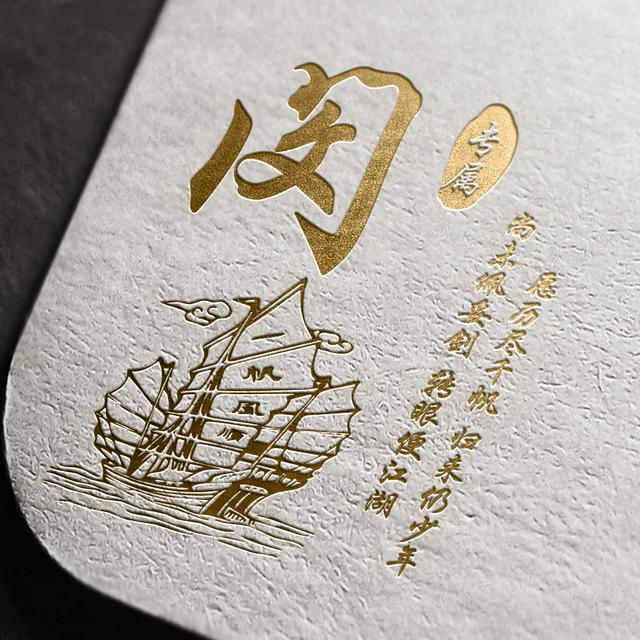 闵
专属
愿历尽千帆 归来仍少年
尚未佩妥剑 转眼便江湖
一
帆
風
順